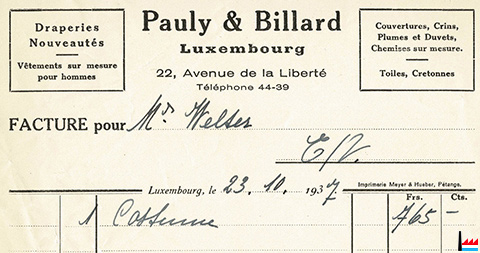 Draperies
Nouveautés
Vêtements sur mesure
pour hommes
Pauly & Billard
Luxembourg
22, Avenue de la Liberté
Téléphone 44-39
Couvertures, Crins,
Plumes et Duvets,
Chemises sur mesure.
Toiles, Cretonnes
FACTURE pour Mr. Welter
E/V.
Luxembourg, le 23. 10. 1937
Imprimerie Meyer & Hueber, Pétange.
Frs. Cts.
1 Costume 765 —